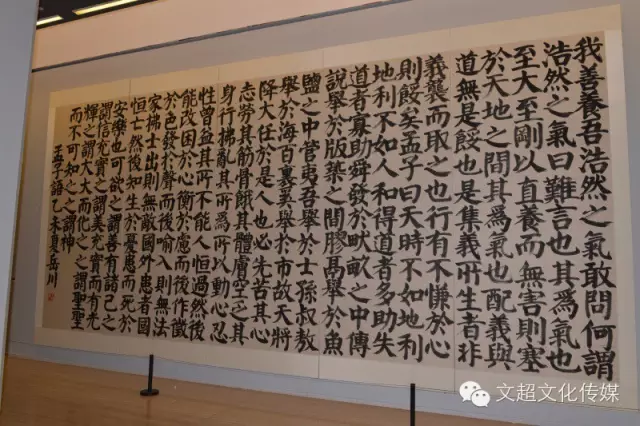 我善養吾浩然之氣敢問何謂
浩然之氣曰難言也其爲氣也
至大至剛以直養而無害則塞
於天地之間其爲氣也配義與
道無是餒也是集義所生者非
義襲而取之也行有不慊於心
則餒矣孟子曰天時不如地利
地利不如人和得道者多助失
道者寡助舜發於畎畝之中傅
說舉於版築之間膠鬲舉於魚
鹽之中管夷吾舉於士孫叔敖
舉於海百里奚舉於市故天將
降大任於是人也必先苦其心
志勞其筋骨餓其體膚空乏其
身行拂亂其所爲所以動心忍
性曾益其所不能人恒過然後
能改困於心衡於慮而後作徵
於色發於聲而後喻入則無法
家拂士出則無敵國外患者國
恒亡然後知生於憂患而死於
安樂也可欲之謂善有諸己之
謂信充實之謂美充實而有光
輝之謂大大而化之之謂聖聖
而不可知之之謂神
孟子語乙未夏岳川
文超文化传媒